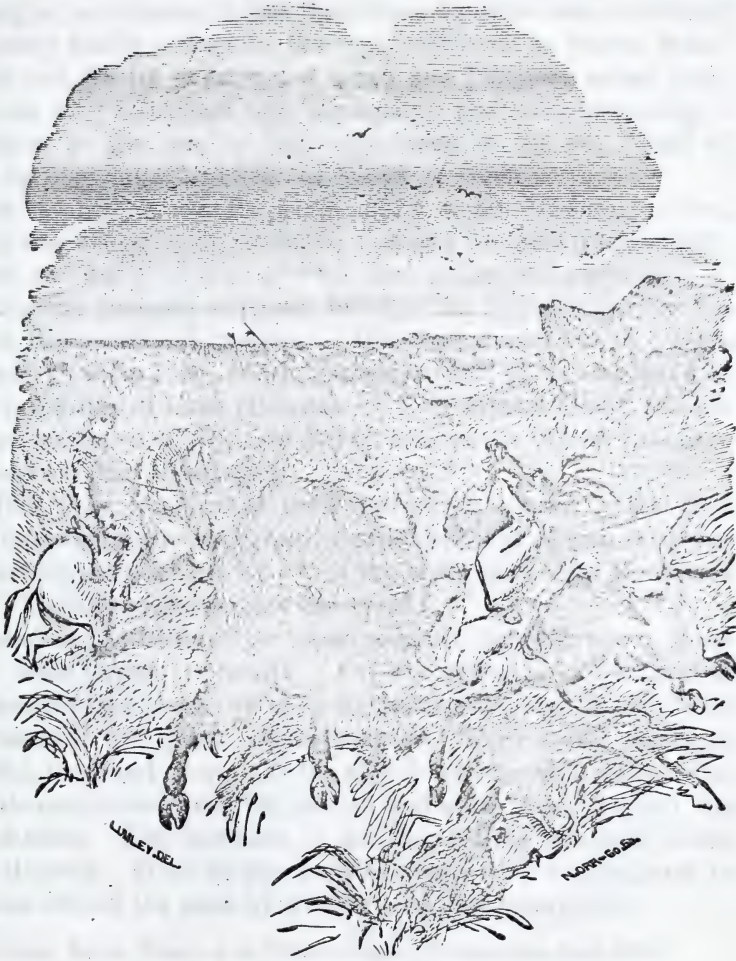 LUMLEY.DEL.
N.ORR-CO.SC.